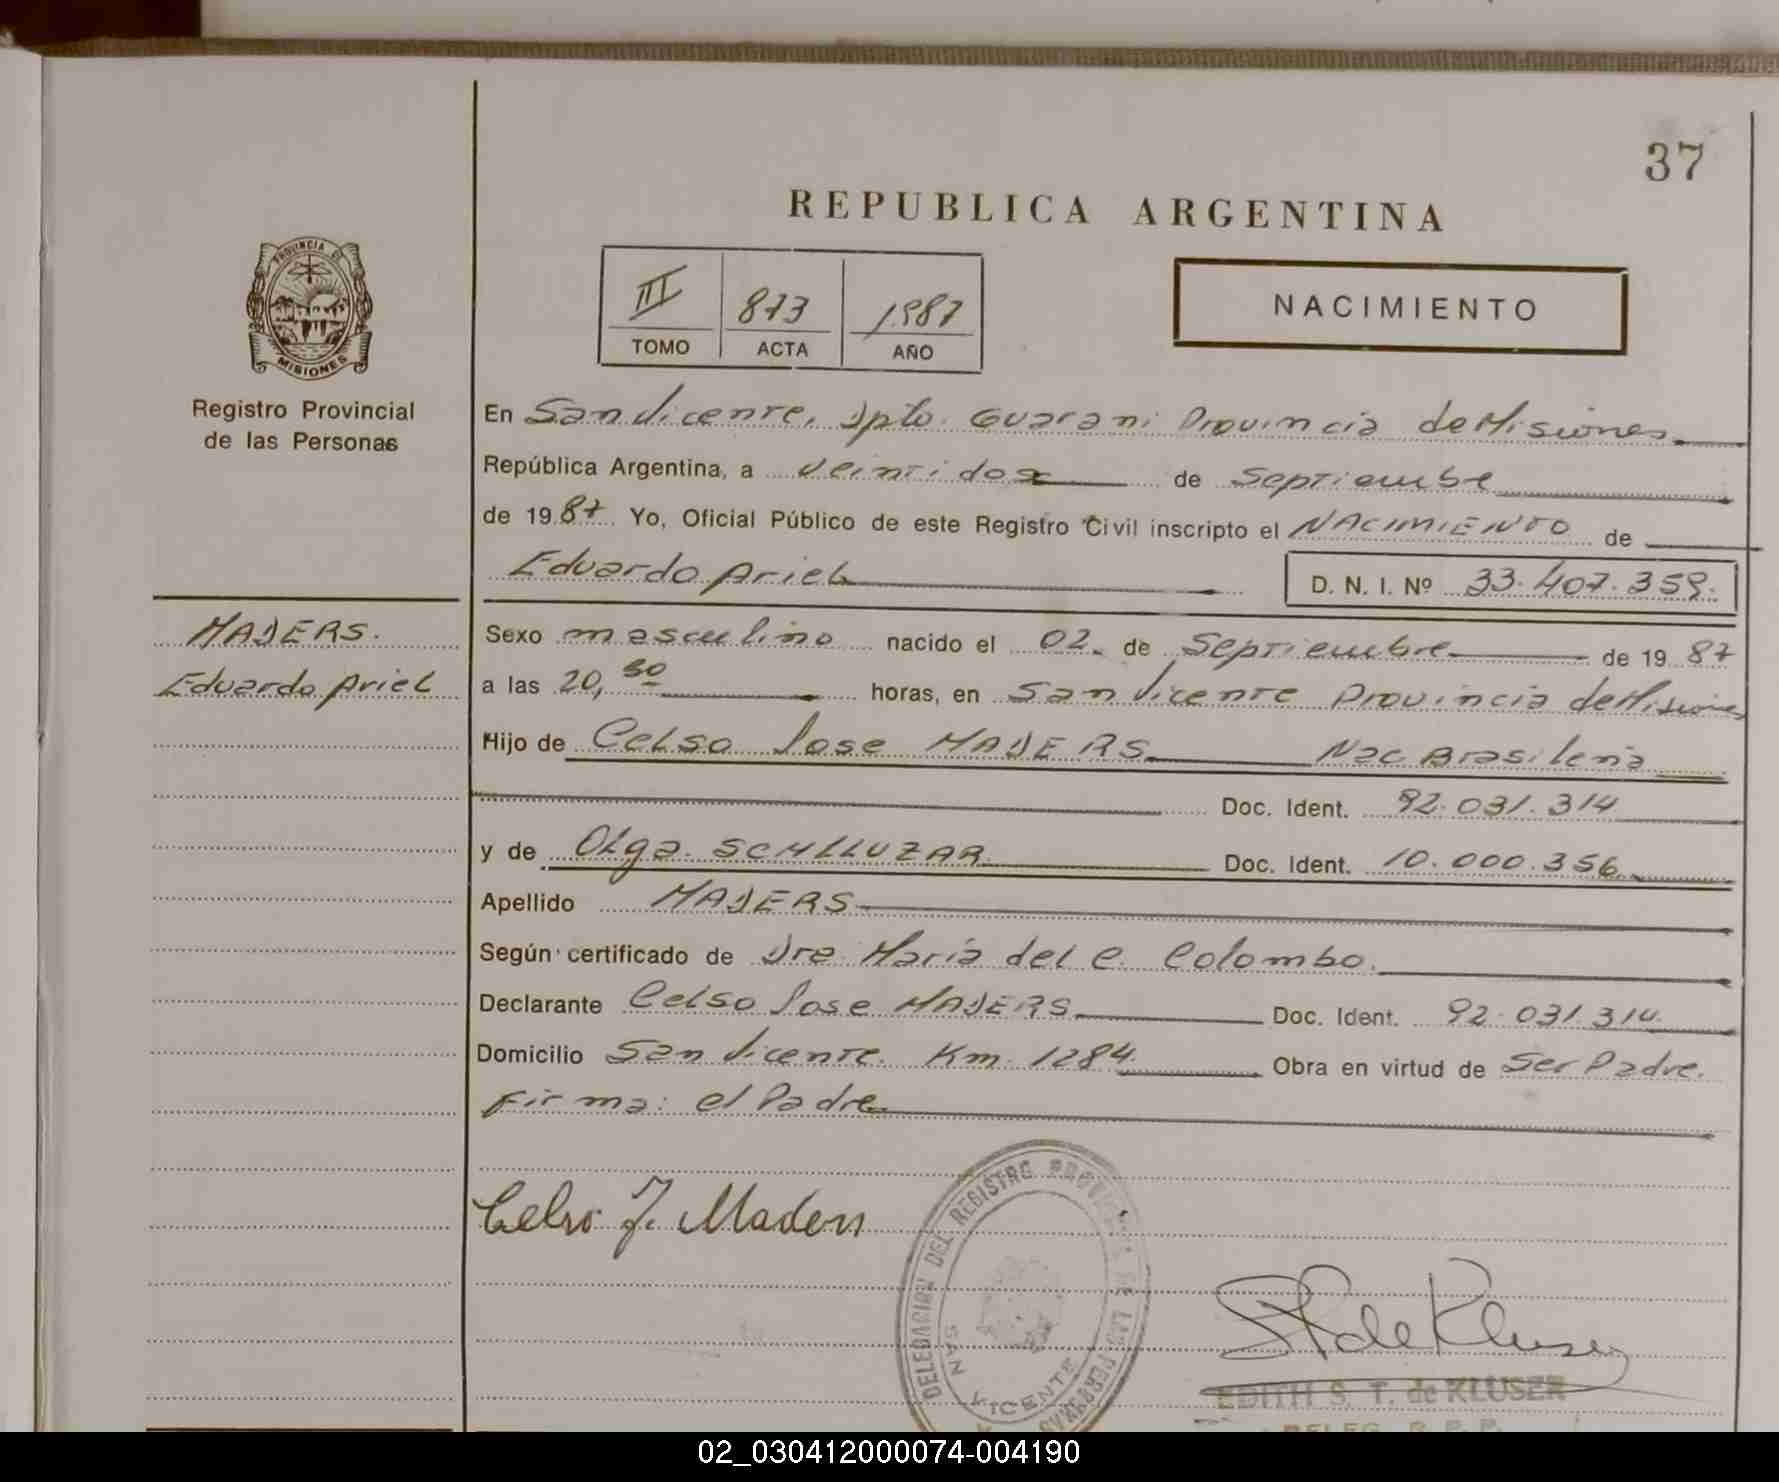 37
REPUBLICA ARGENTINA
PROVINCIA DE
MISIONES
III 873 1987
TOMO ACTA AÑO
NACIMIENTO
Registro Provincial
de las Personas
En San Vicente, Dpto. Guarani Provincia de Misiones
República Argentina, a veintidos de Septiembre
de 1987 Yo, Oficial Público de este Registro Civil inscripto el NACIMIENTO de
Eduardo Ariel D. N. I. Nº 33.407.359.
MADERS.
Eduardo Ariel
Sexo masculino nacido el 02 de Septiembre de 1987
a las 20,30 horas, en San Vicente Provincia de Misiones
Hijo de Celso Jose MADERS Nac Brasileña
Doc. Ident. 92.031.314
y de Olga SCHLLUZAR Doc. Ident. 10.000.356
Apellido MADERS
Según certificado de Dra Maria del C. Colombo.
Declarante Celso Jose MADERS Doc. Ident. 92.031.314
Domicilio San Vicente. Km. 1284 Obra en virtud de Ser Padre.
Firma: el Padre
Celso J. Maders
DELEGACION DEL REGISTRO PROVINCIAL DE LAS PERSONAS
SAN VICENTE
EDITH S. T. de KLUSER
DELEG. R. P. P.
02_030412000074-004190